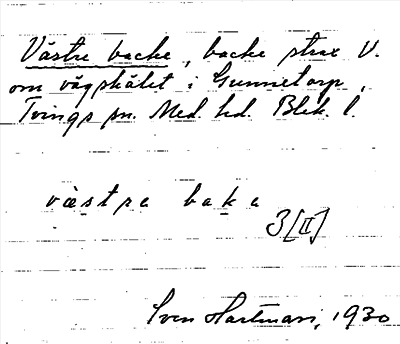 Västre backe, backe strax V.
om vägskälet i Gunnetorp,
Tvings sn. Med. hd. Blek. l.
västra baka
3[II]
Sven Hartman, 1930